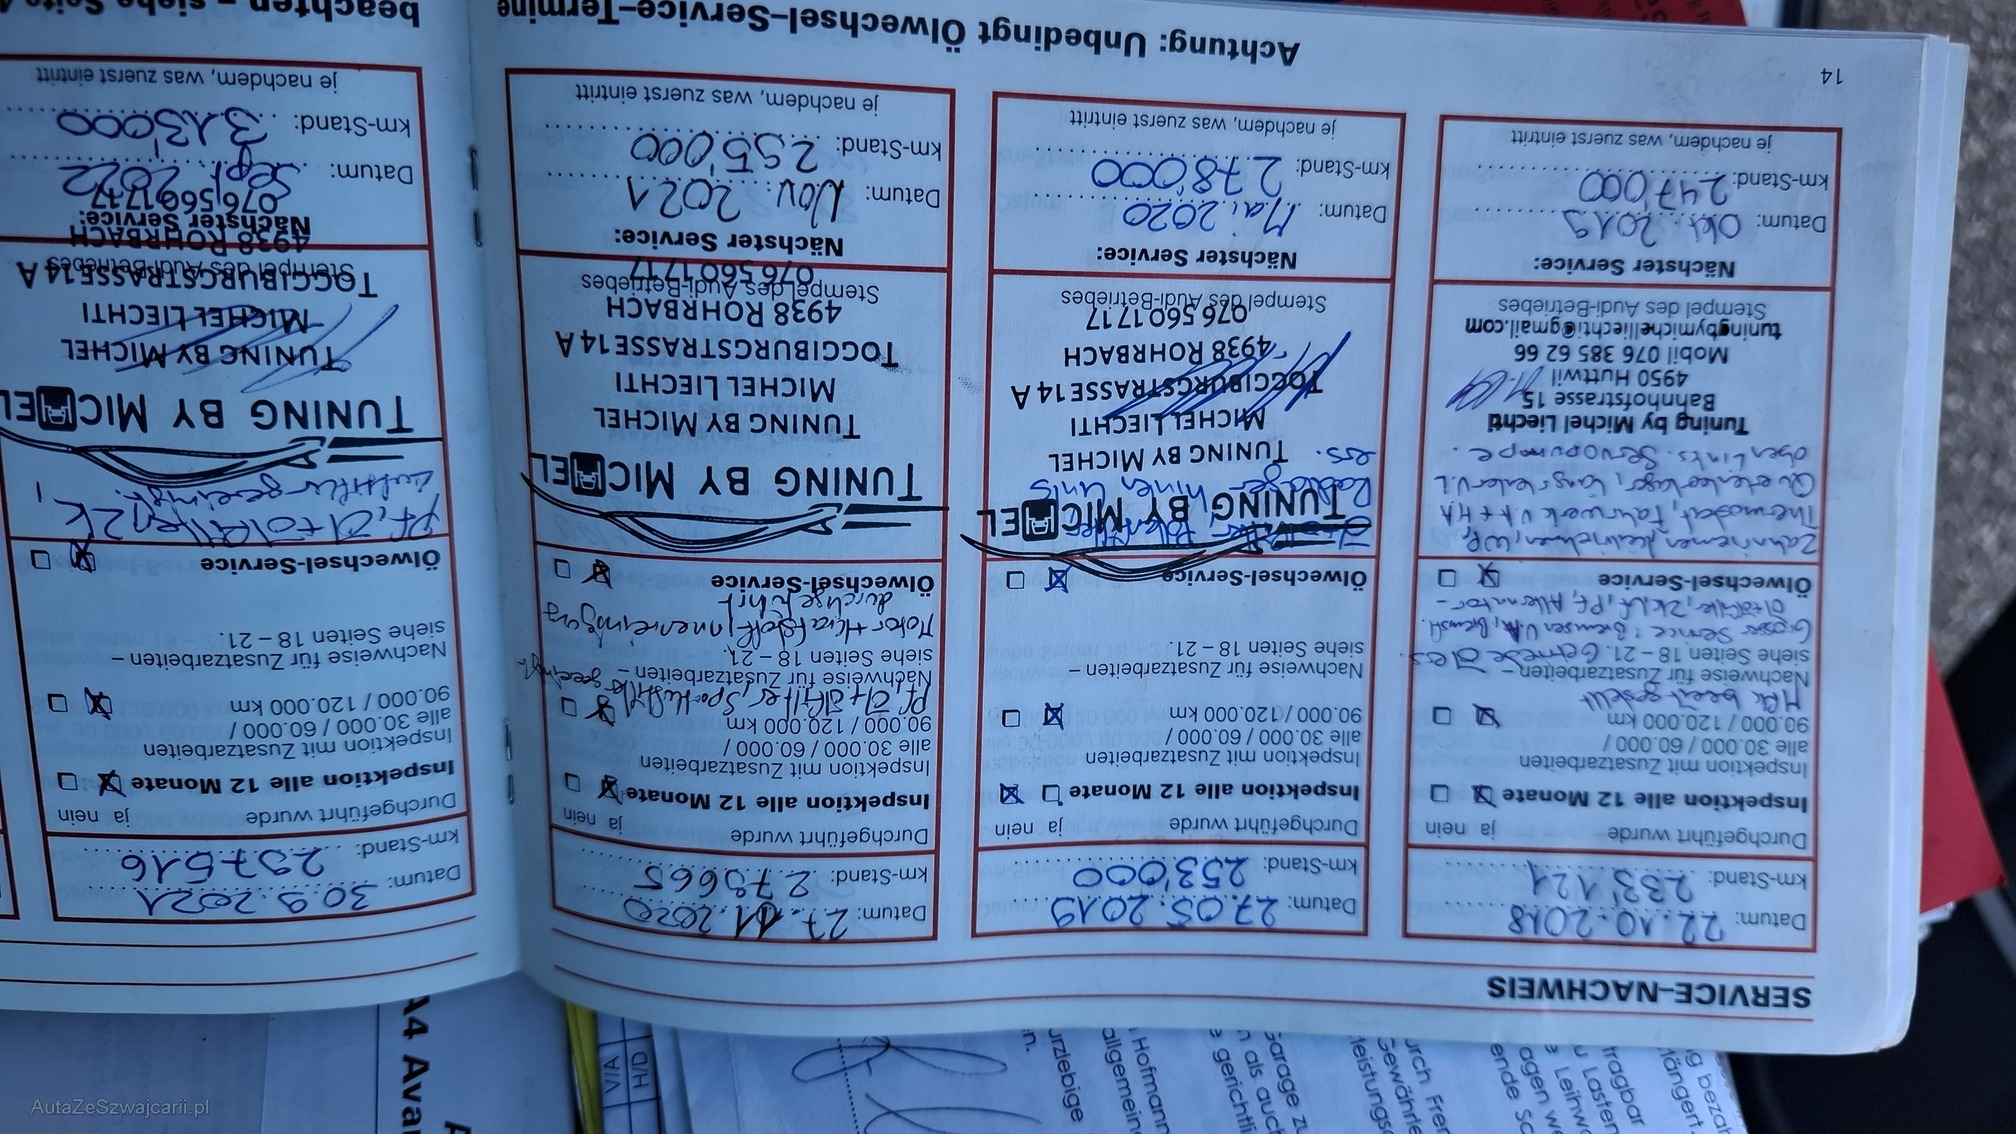 SERVICE–NACHWEIS
Datum: 22.10.2018
km-Stand: 233'121
Durchgeführt wurde ja nein
Inspektion alle 12 Monate
Inspektion mit Zusatzarbeiten
alle 30.000 / 60.000 /
90.000 / 120.000 km
MFK bereit gestellt
Nachweise für Zusatzarbeiten –
siehe Seiten 18 – 21.
Grosser Service: Bremsen
Alternator
Ölwechsel-Service
Zahnriemen,
Thermostat, Fahrwerk VA + HA
Servopumpe.
Tuning by Michel Liechti
Bahnhofstrasse 15
4950 Huttwil
Mobil 076 385 62 66
tuningbymichelliechti@gmail.com
Stempel des Audi-Betriebes
Nächster Service:
Datum: Okt. 2019
km-Stand: 247'000
je nachdem, was zuerst eintritt
14
Datum: 27.05.2019
km-Stand: 253'000
Durchgeführt wurde ja nein
Inspektion alle 12 Monate
Inspektion mit Zusatzarbeiten
alle 30.000 / 60.000 /
90.000 / 120.000 km
Nachweise für Zusatzarbeiten –
siehe Seiten 18 – 21.
Ölwechsel-Service
TUNING BY MICHEL
Radlager hinten links
ers.
TUNING BY MICHEL
MICHEL LIECHTI
TOGGIBURGSTRASSE 14 A
4938 ROHRBACH
076 560 17 17
Stempel des Audi-Betriebes
Nächster Service:
Datum: Mai 2020
km-Stand: 278'000
je nachdem, was zuerst eintritt
Datum: 27.11.2020
km-Stand: 279665
Durchgeführt wurde ja nein
Inspektion alle 12 Monate
Inspektion mit Zusatzarbeiten
alle 30.000 / 60.000 /
90.000 / 120.000 km
PF, Öl + Ölfilter, Sportluftfilter gereinigt
Nachweise für Zusatzarbeiten –
siehe Seiten 18 – 21.
Motor + Kraftstoff, innenreinigung
durchgeführt
Ölwechsel-Service
TUNING BY MICHEL
TUNING BY MICHEL
MICHEL LIECHTI
TOGGIBURGSTRASSE 14 A
4938 ROHRBACH
076 560 17 17
Stempel des Audi-Betriebes
Nächster Service:
Datum: Nov. 2021
km-Stand: 295'000
je nachdem, was zuerst eintritt
Achtung: Unbedingt Ölwechsel–Service–Termine
Datum: 30.9.2021
km-Stand: 297516
Durchgeführt wurde ja nein
Inspektion alle 12 Monate
Inspektion mit Zusatzarbeiten
alle 30.000 / 60.000 /
90.000 / 120.000 km
Nachweise für Zusatzarbeiten –
siehe Seiten 18 – 21.
Ölwechsel-Service
PF, Öl + Ölfilter, ZK,
Luftfilter gereinigt.
TUNING BY MICHEL
TUNING BY MICHEL
MICHEL LIECHTI
TOGGIBURGSTRASSE 14 A
Stempel des Audi-Betriebes
4938 ROHRBACH
Nächster Service:
076 560 17 17
Datum: Sept. 2022
km-Stand: 313'000
je nachdem, was zuerst eintritt
beachten – siehe Seite
A4 Avan
V/A
H/D
AutaZeSzwajcarii.pl